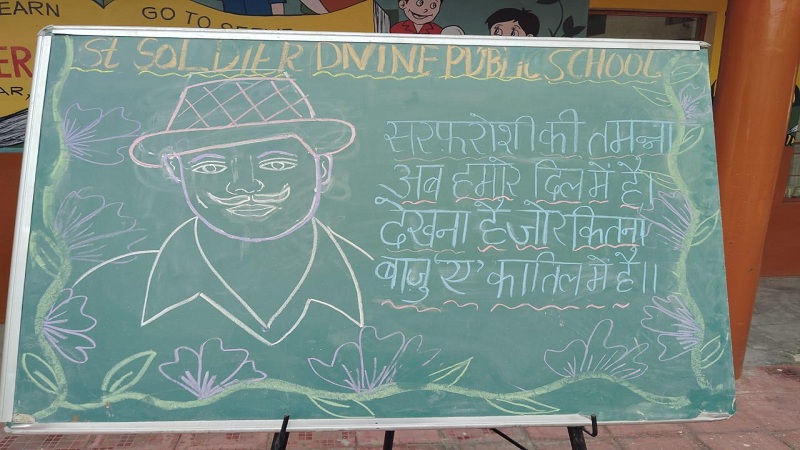 EARN
GO TO SERVE
ER
AR,
St SOLDIER DIVINE PUBLIC SCHOOL
सरफ़रोशी की तमन्ना
अब हमारे दिल में है।
देखना है जोर कितना
बाजु 'ए' कातिल में है॥